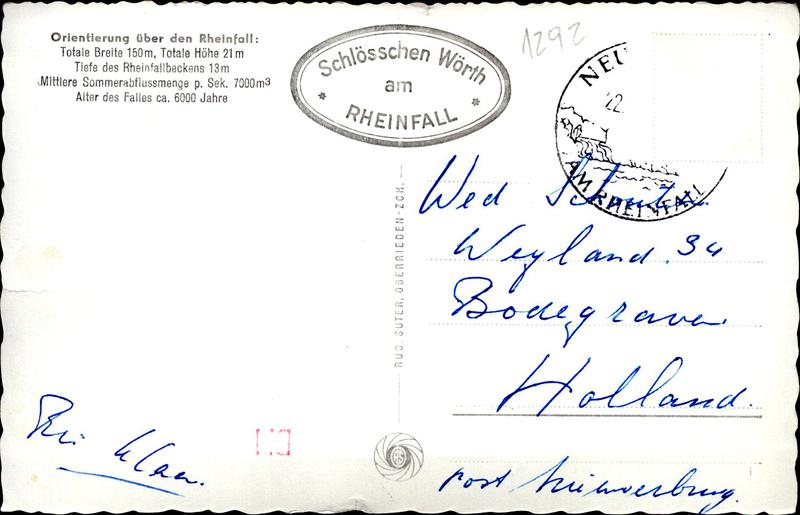 Orientierung über den Rheinfall:
Totale Breite 150m, Totale Höhe 21m
Tiefe des Rheinfallbeckens 13m
Mittlere Sommerabflussmenge p. Sek. 7000m³
Alter des Falles ca. 6000 Jahre
Schlösschen Wörth
am
RHEINFALL
1292
NEU
22.
AM RHEINFALL
RUD. SUTER, OBERRIEDEN-ZCH.
Wed
Weyland 34
Bodegraven
Holland.
post